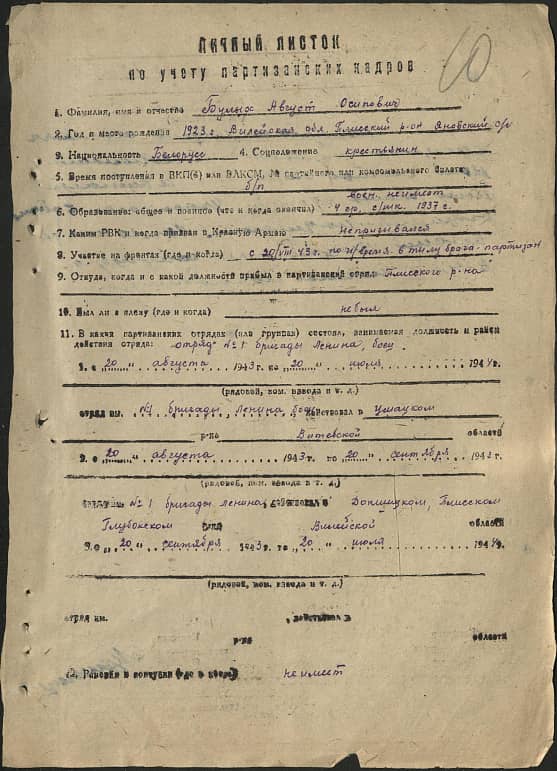 ЛИЧНЫЙ ЛИСТОК
по учету партизанских кадров
10
1. Фамилия, имя и отчество Булых Август Осипович
2. Год и место рождения 1923 г. Вилейская обл. Плисский р-он Яновский с/с
3. Национальность Белорусс 4. Соцположение крестьянин
5. Время поступления в ВКП(б) или ВЛКСМ, № партийного или комсомольского билета
б/п
воен. неимеет
6. Образование: общее и военное (что и когда окончил) 4 гр. с/шк. 1937 г.
7. Каким РВК и когда призван в Красную Армию непризывался
8. Участие на фронтах (где и когда) с 20/VIII 43 г. по н/время в тылу врага партизан
9. Откуда, когда и с какой должности прибыл в партизанский отряд Плисского р-на
10. Был ли в плену (где и когда) небыл
11. В каких партизанских отрядах (или группах) состоял, занимаемая должность и район
действия отряда: отряд № 1 бригады Ленина, боец.
1. с „20“ августа 1943 г. по „20“ июля 1944 г.
(рядовой, ком. взвода и т. д.)
отряд им. №1 бригады Ленина боец действовал в Ушацком
р-не Витебской области
2. с „20“ августа 1943 г. по „20“ сентября 1943 г.
(рядовой, ком. взвода и т. д.)
отряд им. № 1 бригады Ленина, действовал в Докшицком, Плисском
Глубокском р-не Вилейской области
3. с „20“ сентября 1943 г. по „20“ июля 1944 г.
(рядовой, ком. взвода и т. д.)
отряд им. , действовал в
р-не области
12. Ранения и контузии (где и когда) неимеет